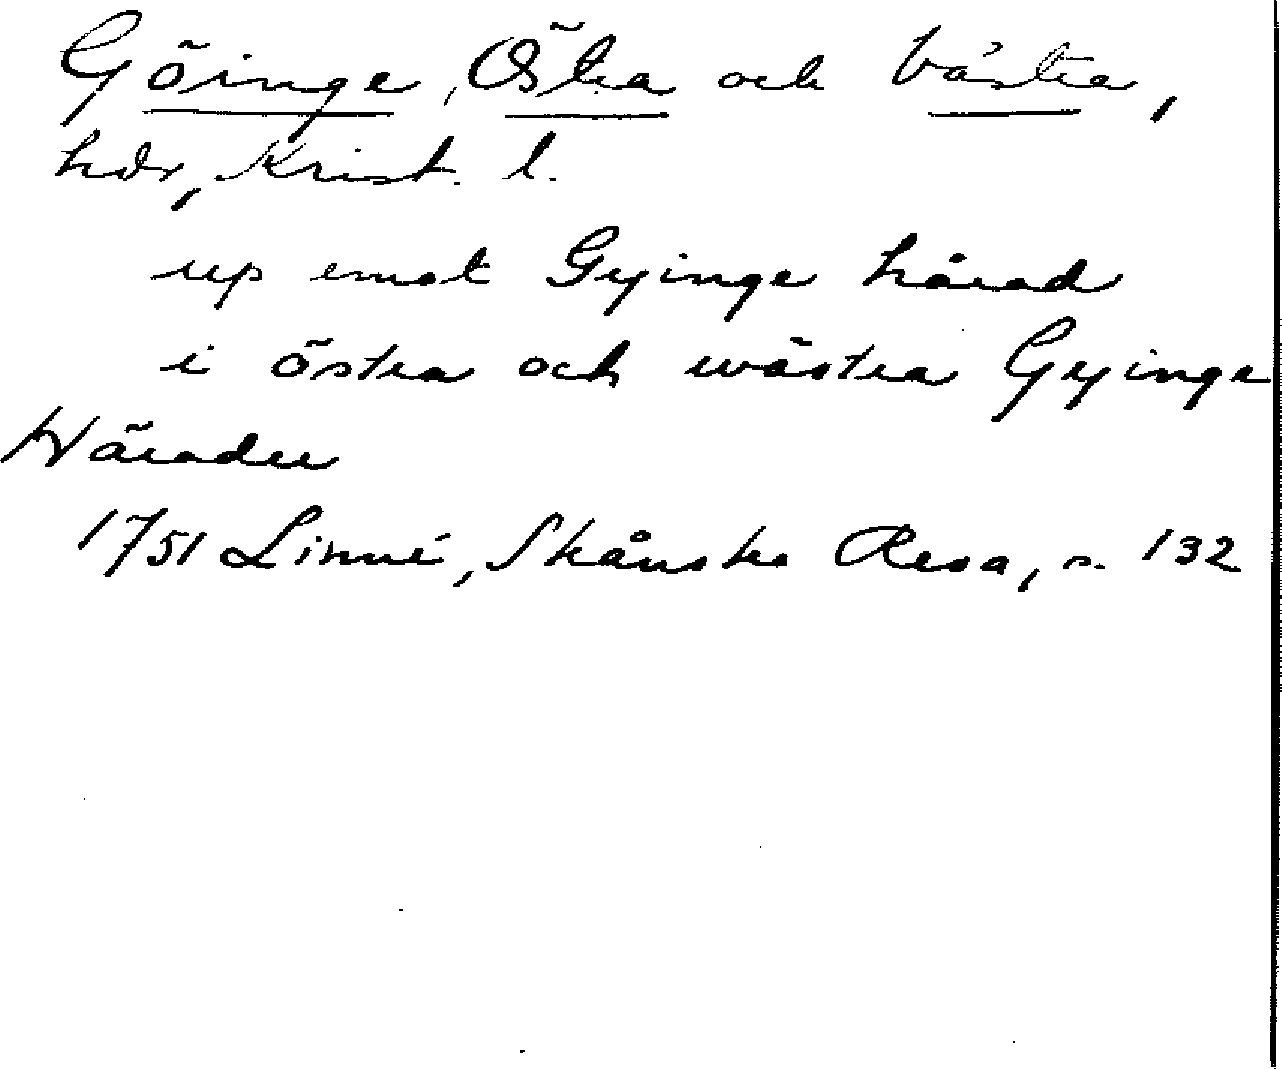 Göinge, Östra och Västra,
hdr, Krist. l.
up emot Gyinge härad
i östra och wästra Gyinge
Häradee
1751 Linné, Skånska Resa, s. 132